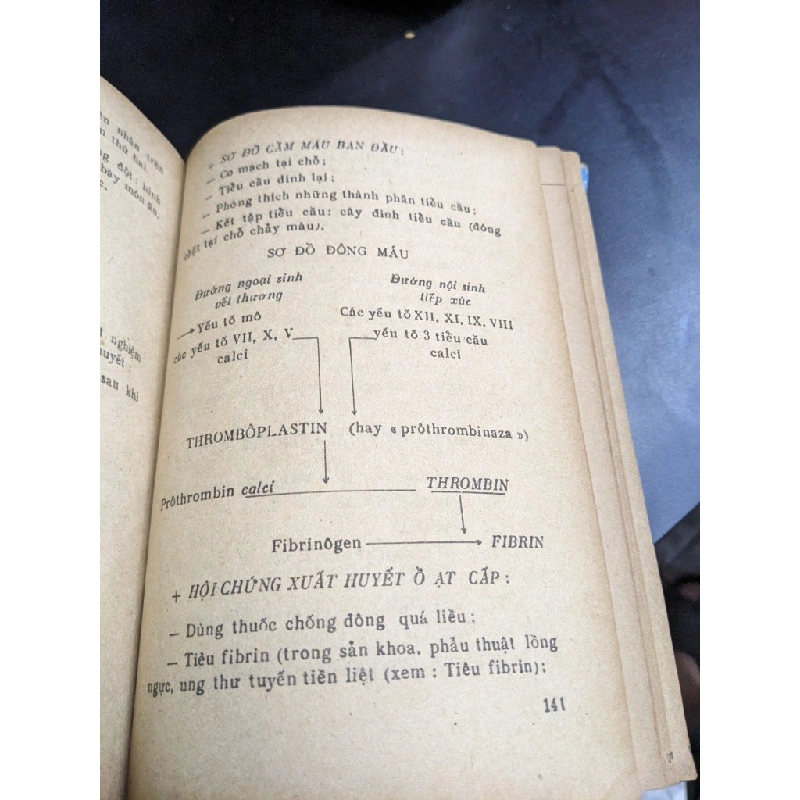 ên nhân trên
ần thứ hai.
ng đột: hình
hay món ăn,
t nghiệm
huyết:
sau khi
+ SƠ ĐỒ CẦM MÁU BAN ĐẦU:
— Co mạch tại chỗ;
— Tiểu cầu đính lại;
— Phóng thích những thành phần tiểu cầu;
— Kết tập tiểu cầu: cây đinh tiểu cầu (đóng
chặt tại chỗ chảy máu).
SƠ ĐỒ ĐÔNG MÁU
Đường ngoại sinh
vết thương
Yếu tố mô
các yếu tố VII, X, V
calci
Đường nội sinh
tiếp xúc
Các yếu tố XII, XI, IX, VIII
yếu tố 3 tiểu cầu
calci
THROMBÔPLASTIN (hay « prôthrombinaza »)
Prôthrombin calci THROMBIN
Fibrinôgen FIBRIN
+ HỘI CHỨNG XUẤT HUYẾT Ồ ẠT CẤP:
— Dùng thuốc chống đông quá liều;
— Tiêu fibrin (trong sản khoa, phẫu thuật lồng
ngực, ung thư tuyến tiền liệt (xem : Tiêu fibrin);
141